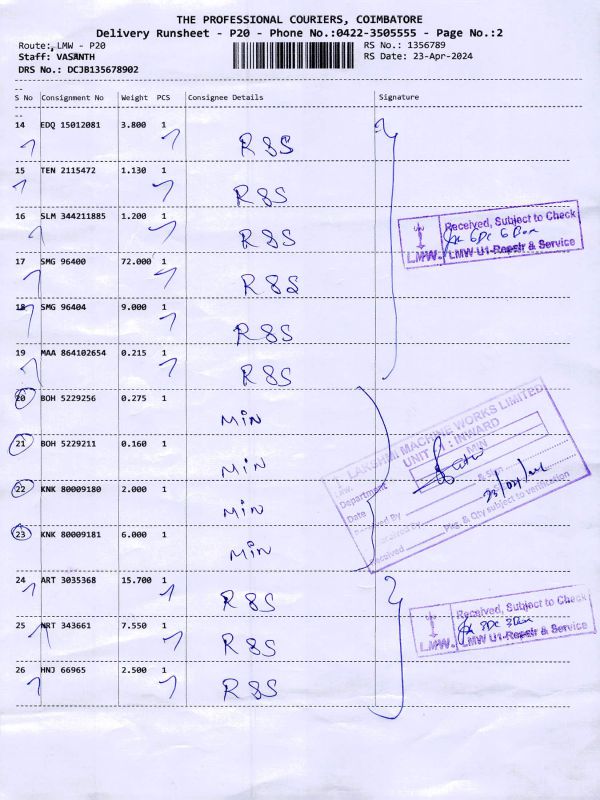 THE PROFESSIONAL COURIERS, COIMBATORE
Delivery Runsheet - P20 - Phone No.:0422-3505555 - Page No.:2
Route: LMW - P20
RS No.: 1356789
Staff: VASANTH
RS Date: 23-Apr-2024
DRS No.: DCJB135678902
S No Consignment No Weight PCS Consignee Details Signature
14 EDQ 15012081 3.800 1
R&S
15 TEN 2115472 1.130 1
R&S
16 SLM 344211885 1.200 1
R&S
Received, Subject to Check
LMW. LMW U1-Repair & Service
17 SMG 96400 72.000 1
R&S
18 SMG 96404 9.000 1
R&S
19 MAA 864102654 0.215 1
R&S
20 BOH 5229256 0.275 1
MIN
21 BOH 5229211 0.160 1
MIN
22 KNK 80009180 2.000 1
MIN
23 KNK 80009181 6.000 1
MIN
LAKSHMI MACHINE WORKS LIMITED
UNIT : INWARD
MIN
Department
Date
& Sign
Received By
Received
Pkg. & Qty subject to verification
24 ART 3035368 15.700 1
R&S
25 NRT 343661 7.550 1
R&S
Received, Subject to Check
LMW. LMW U1-Repair & Service
26 HNJ 66965 2.500 1
R&S